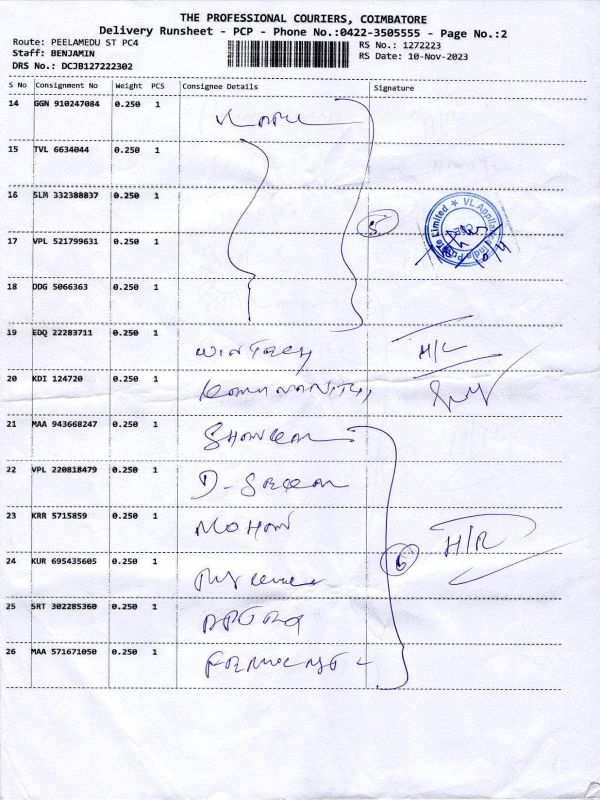 THE PROFESSIONAL COURIERS, COIMBATORE
Delivery Runsheet - PCP - Phone No.:0422-3505555 - Page No.:2
Route: PEELAMEDU ST PC4
Staff: BENJAMIN
DRS No.: DCJB127222302
RS No.: 1272223
RS Date: 10-Nov-2023
S No Consignment No Weight PCS Consignee Details Signature
14 GGN 910247084 0.250 1
15 TVL 6634044 0.250 1
16 SLM 332388837 0.250 1
5
17 VPL 521799631 0.250 1
18 DDG 5066363 0.250 1
19 EDQ 22283711 0.250 1 WINTECH H/L
20 KDI 124720 0.250 1
21 MAA 943668247 0.250 1
22 VPL 220818479 0.250 1
23 KRR 5715859 0.250 1 MOHAN H/R
24 KUR 695435605 0.250 1
6
25 SRT 302285360 0.250 1
26 MAA 571671050 0.250 1